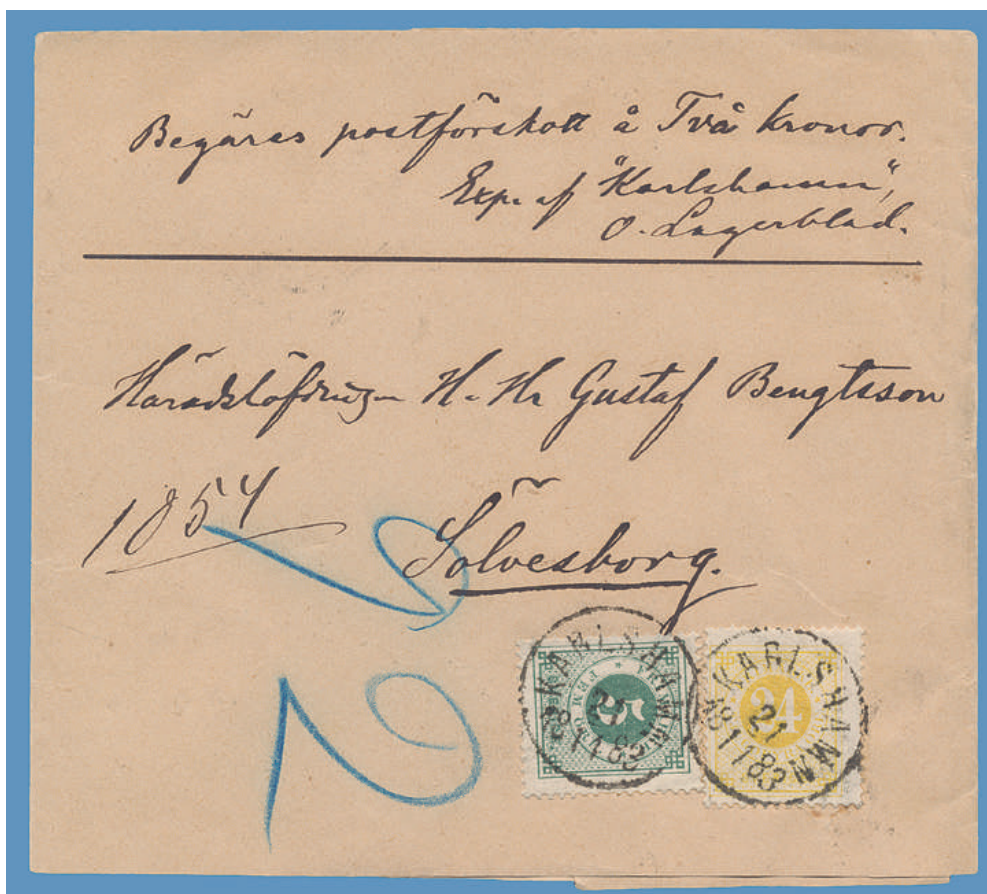 Begäres postförskott à Två kronor.
Exp. af "Karlshamn",
O. Lagerblad.
H. Hr Gustaf Bengtsson
1854
Sölvesborg.
2
KARLSHAMN
21
11 83
5
KARLSHAMN
21
11 83
24